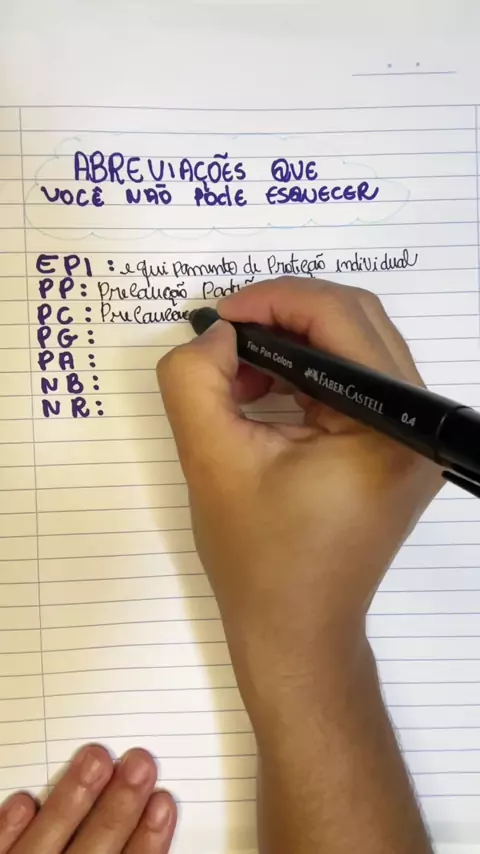 ABREVIAÇÕES QUE
VOCÊ NÃO PODE ESQUECER
EPI : equipamento de Proteção individual
PP : Precaução
PC :
PG :
PA :
NB :
NR :
Fine Pen Colors FABER-CASTELL 0.4